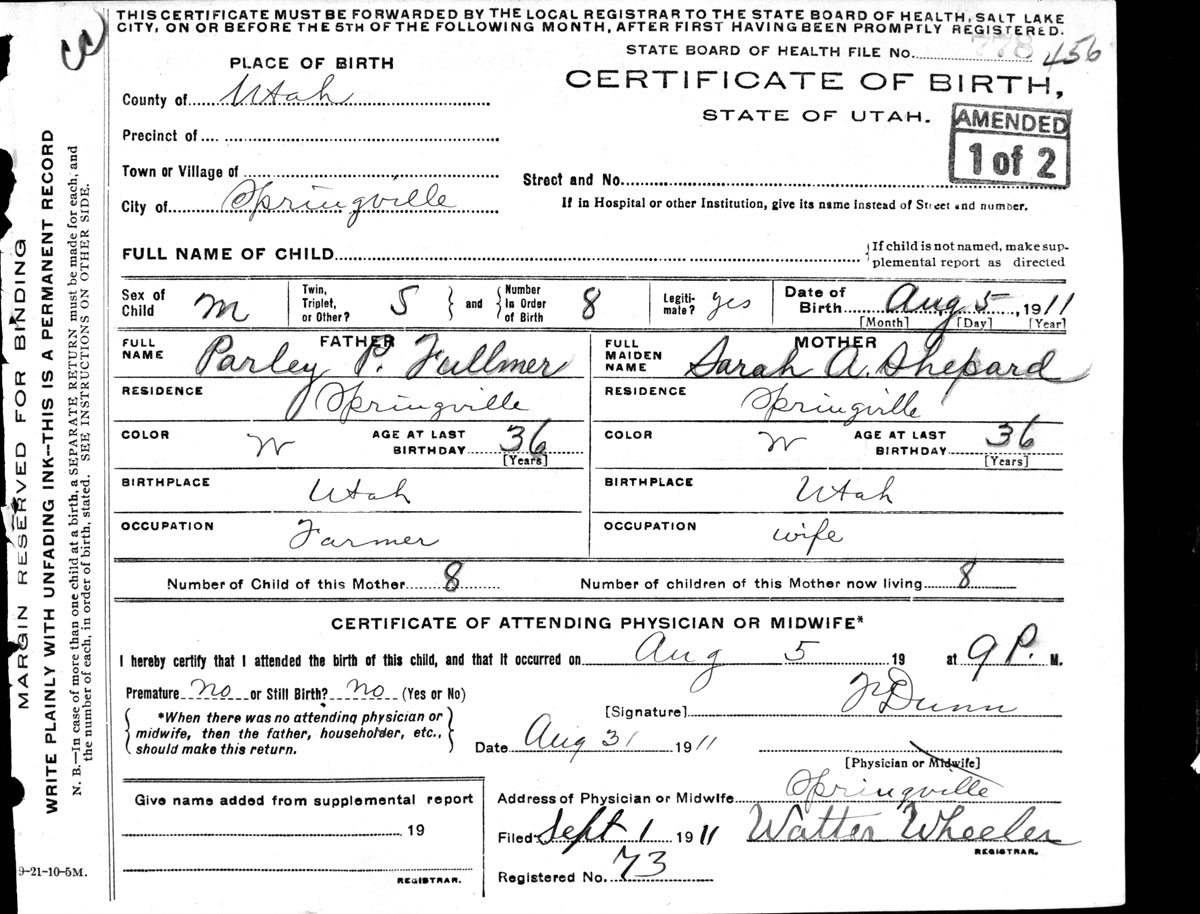 THIS CERTIFICATE MUST BE FORWARDED BY THE LOCAL REGISTRAR TO THE STATE BOARD OF HEALTH, SALT LAKE
CITY, ON OR BEFORE THE 5TH OF THE FOLLOWING MONTH, AFTER FIRST HAVING BEEN PROMPTLY REGISTERED.
STATE BOARD OF HEALTH FILE No. 778 456
PLACE OF BIRTH
CERTIFICATE OF BIRTH,
STATE OF UTAH.
AMENDED
1 of 2
County of Utah
Precinct of
Town or Village of
City of Springville
Street and No.
If in Hospital or other Institution, give its name instead of Street and number.
FULL NAME OF CHILD
If child is not named, make sup-
plemental report as directed
Sex of Child M
Twin, Triplet, or Other? 5 and Number In Order of Birth 8
Legiti-mate? yes
Date of Birth Aug 5, 1911
[Month] [Day] [Year]
FATHER
FULL NAME Parley P. Fullmer
MOTHER
FULL MAIDEN NAME Sarah A. Shepard
RESIDENCE Springville
RESIDENCE Springville
COLOR W AGE AT LAST BIRTHDAY 36 [Years]
COLOR W AGE AT LAST BIRTHDAY 36 [Years]
BIRTHPLACE Utah
BIRTHPLACE Utah
OCCUPATION Farmer
OCCUPATION wife
Number of Child of this Mother 8 Number of children of this Mother now living 8
CERTIFICATE OF ATTENDING PHYSICIAN OR MIDWIFE*
I hereby certify that I attended the birth of this child, and that it occurred on Aug 5 19 at 9 P. M.
Premature no or Still Birth? no (Yes or No)
*When there was no attending physician or
midwife, then the father, householder, etc.,
should make this return.
[Signature] Dunn
Date Aug 31 1911
[Physician or Midwife]
Give name added from supplemental report
19
REGISTRAR.
Address of Physician or Midwife Springville
Filed Sept 1 1911 Walter Wheeler
REGISTRAR.
Registered No. 73
9-21-10-5M.
MARGIN RESERVED FOR BINDING
WRITE PLAINLY WITH UNFADING INK--THIS IS A PERMANENT RECORD
N. B.—In case of more than one child at a birth, a SEPARATE RETURN must be made for each, and
the number of each, in order of birth, stated. SEE INSTRUCTIONS ON OTHER SIDE.